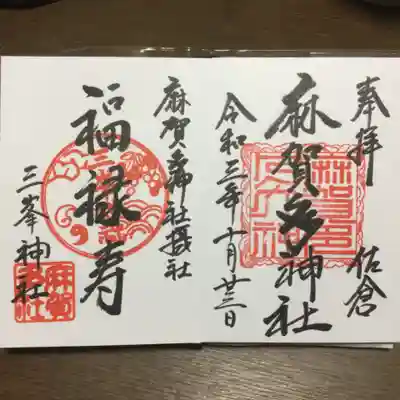 奉拝
佐倉
麻賀多神社
令和三年十月廿三日
麻賀多神社摂社
福禄寿
三峯神社